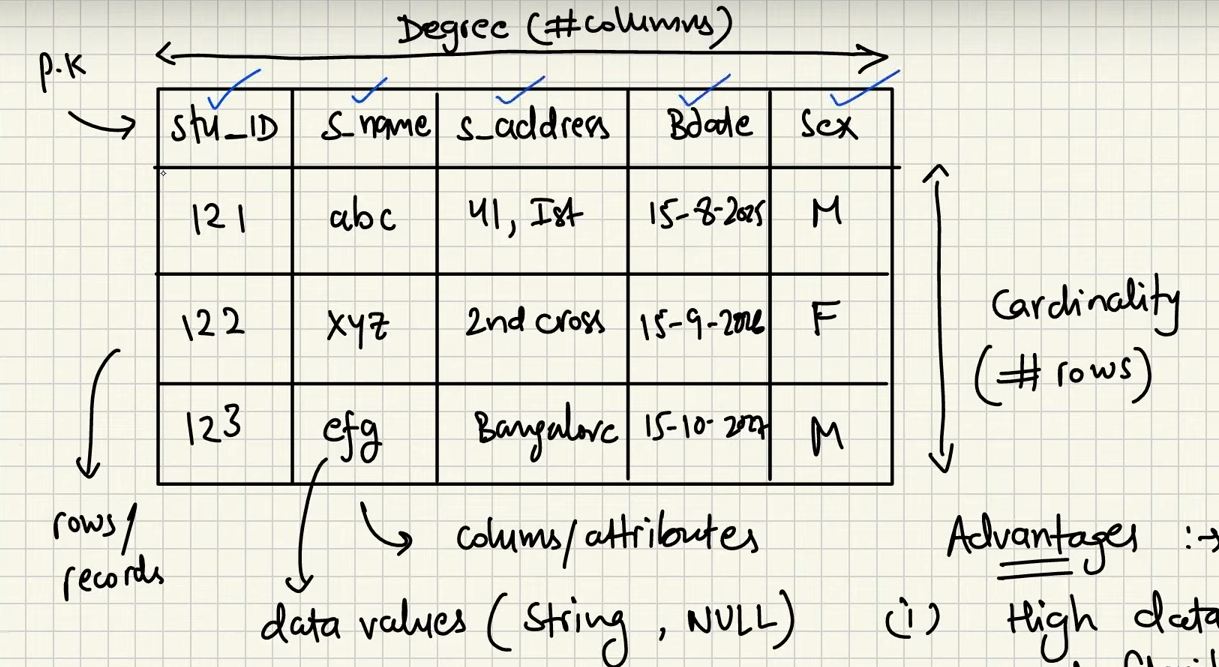 Degree (#columns)
P.K
stu_ID s_name s_address Bdate Sex
121 abc 41, Ist 15-8-2025 M
122 xyz 2nd cross 15-9-2026 F
123 efg Bangalore 15-10-2027 M
Cardinality
(# rows)
rows/
records
colums/attributes
data values (String, NULL)
Advantages :→
(i) High data